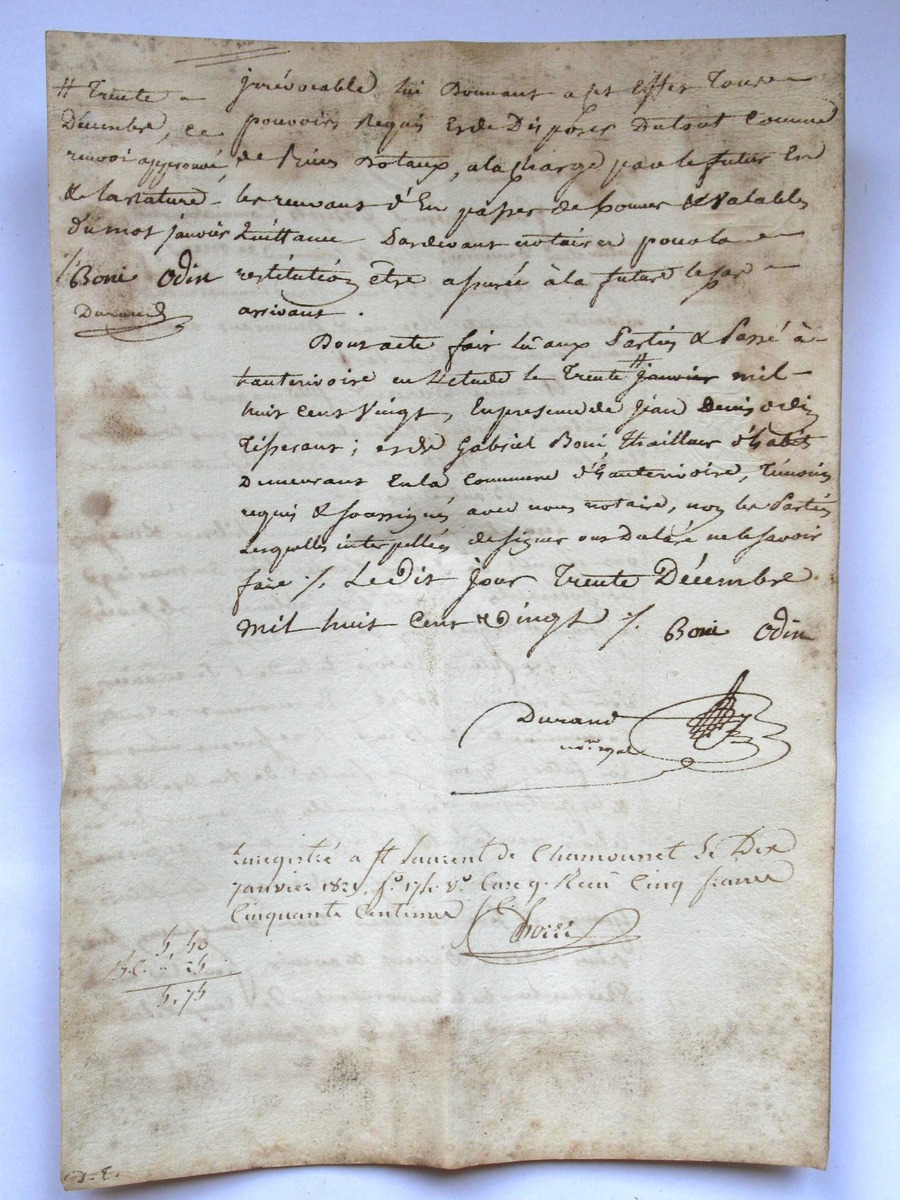 # Trente
Décembre, ce
renvoi approuvé,
& la rature
du mot janvier
Boni Odin
Durand
irrévocable lui Donnant a cet Effet Tous
pouvoirs Requis Et de Disposer Du tout Comme
de Biens Dotaux, a la Charge par le futur En
les recevant d'En passer de bonnes & Valables
Quittance Pardevant notaires pour la
restitution être assurée à la future le cas
arrivant.
Dont acte fait lû aux Parties & Passé à
hauterivoire en L'étude le Trente # janvier mil
huit Cent Vingt, En presence de jean Denis odin
Tisserant; et de Gabriel Boni Thailleur d'habits
Demeurant En la Commune d'hauterivoire, Témoins
requis & soussignés avec nous notaire, non les Parties
Lesquelles interpellées de signer ont Déclaré ne le savoir
faire ./. Le Dit jour Trente Décembre
mil huit Cent Vingt ./. Boni Odin
Durand
nore ryal
Enregistré a St Laurent de Chamousset Le Dix
janvier 1821, fo 174 Vo Case 9. Recu Cinq francs
Cinquante Centimes
5.50
55
5.75